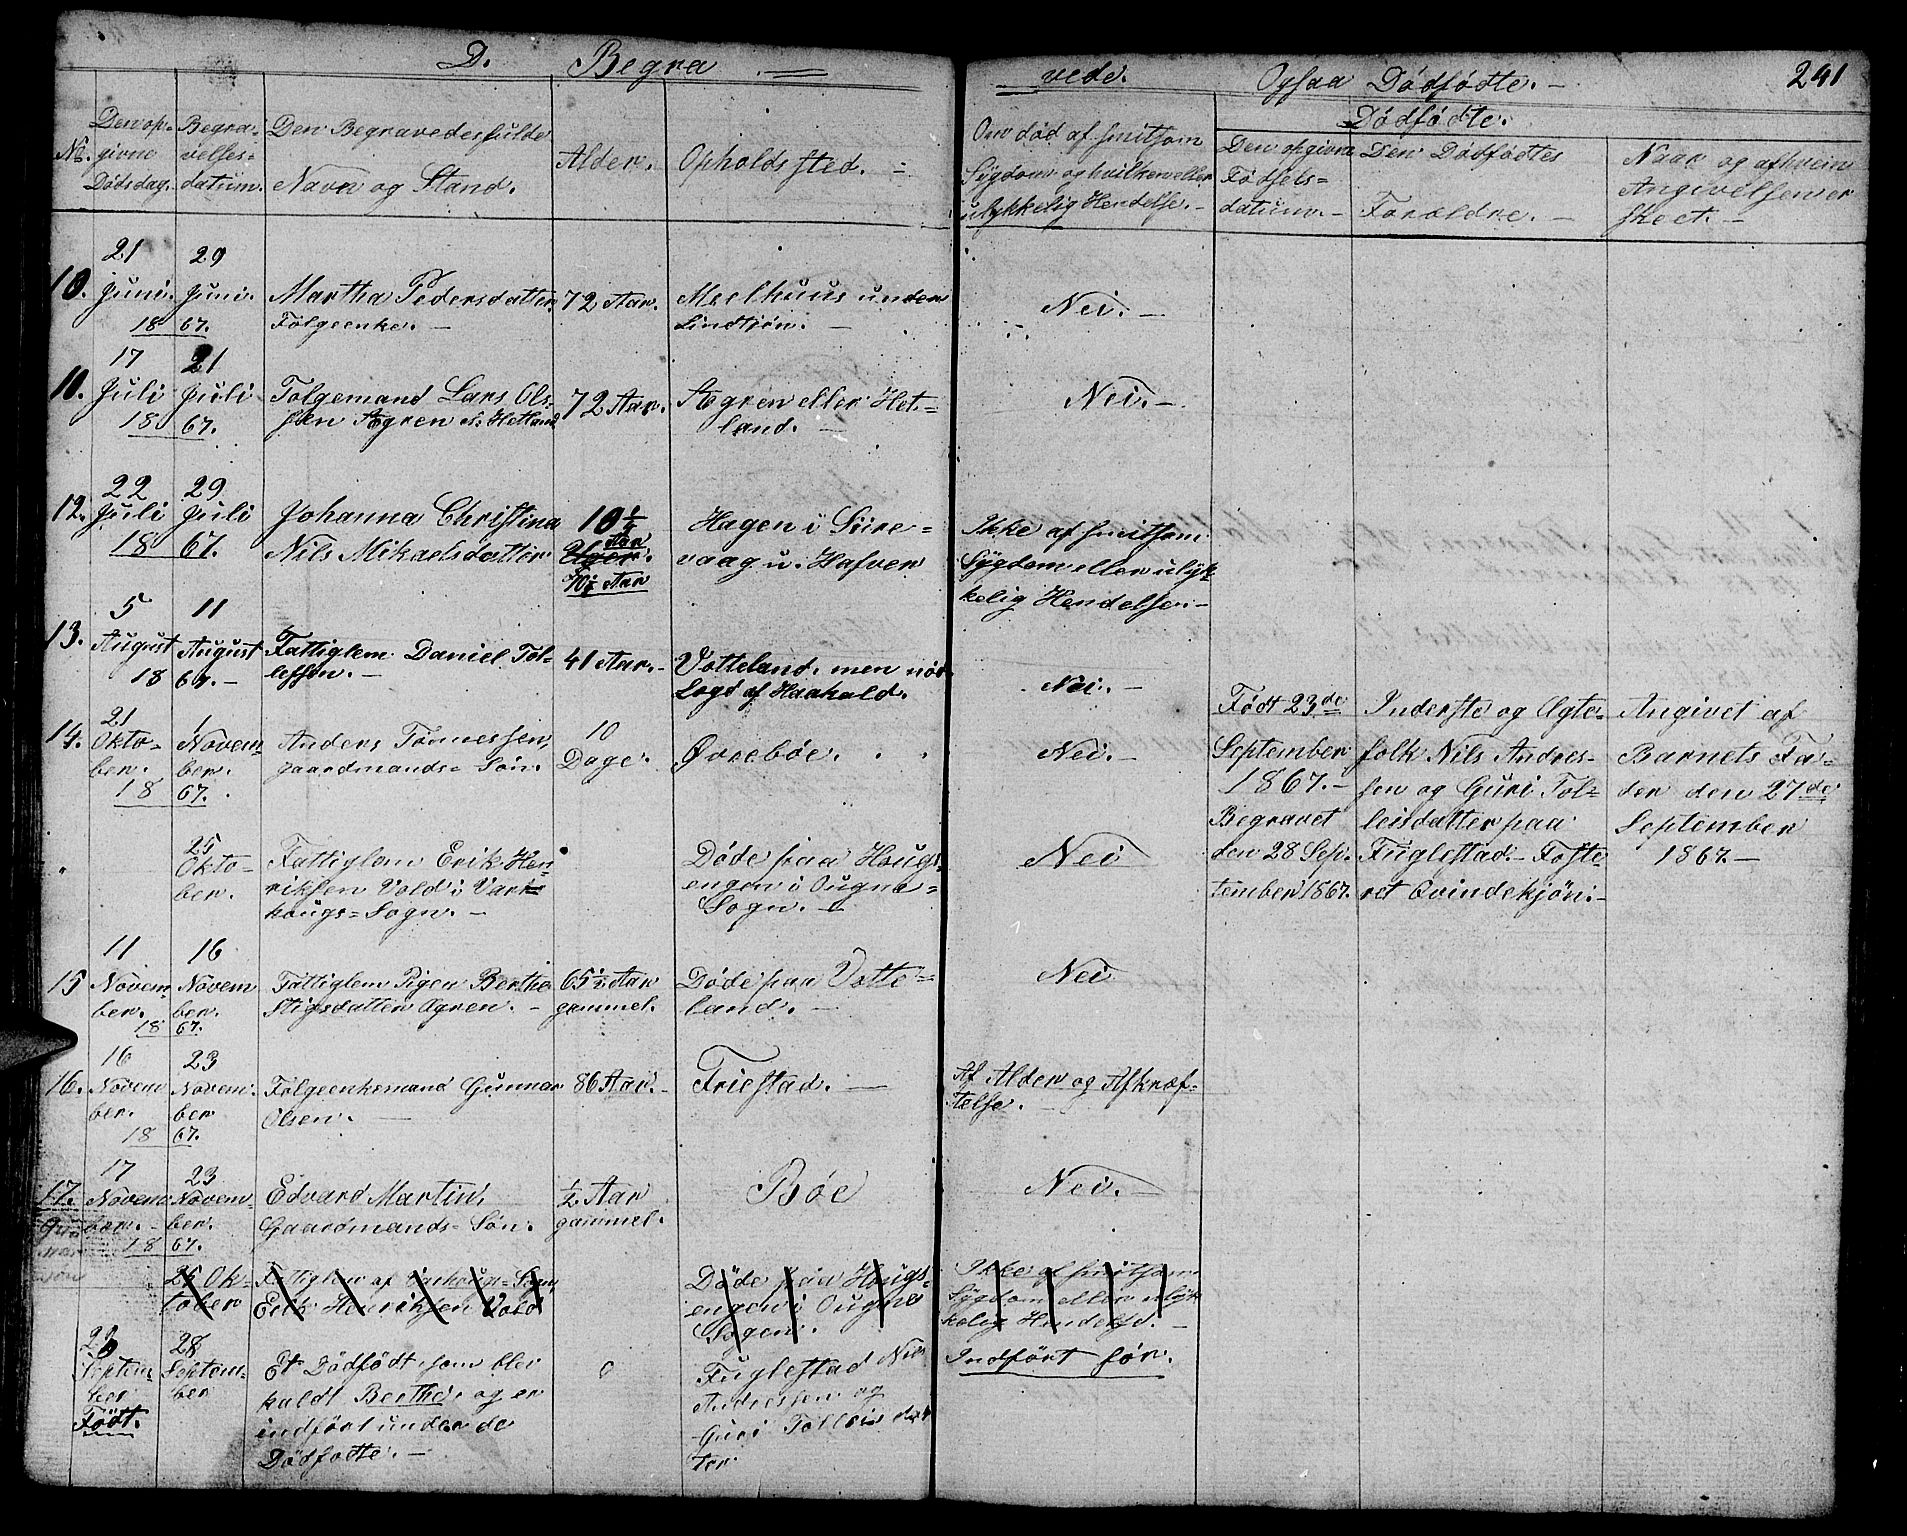 D. Begra = vede. Ogsaa Dödfödte. - 241
No.
Den op-
givne
Dödsdag.
Begra-
velses-
datum.
Den Begravedes fulde
Navn og Stand.
Alder.
Opholdssted. -
Om död af smitsom
Sygdom og hvilken eller
ulykkelig Hendelse. -
Dödfödte.
Den opgivne
Födsels=
datum. -
Den Dödfödtes
Forældre. -
Naar og af hvem
Angivelsen er
skeet. -
10.
21
Juni.
18
29
Juni.
67.
Martha Pedersdatter
Fölgeenke. -
72 Aar.
Meelhuus under
Lindtjön. -
Nei. -
10.
17
Juli
18
21
Juli
67.
Folgemand Lars Ols-
sen Ægren el. Hetland
72 Aar.
Ægren eller Het-
land. -
Nei. -
12.
22
Juli
18
29
Juli
67.
Johanna Christina
Nils Mikaelsdatter
10 ½
Aar
Uger.
10 ½ Aar
Hagen i Siire=
vaag u. Hafver
Ikke af smitsom
Sygdom eller ulyk-
kelig Hendelse. -
13.
5
August
18
11
August
67. -
Fattiglem Daniel Tol-
lefsen. -
41 Aar. -
Votteland. men
Logd af Haahald.
Nei. -
14.
21
Okto-
ber.
18
1
Novem-
ber.
67.
Anders Tönnessen,
gaardmands= Sön.
10
Dage.
Ovreböe.
Nei. -
Födt 23de
September
1867. -
Begravet
den 28 Sep-
tember 1867.
Inderste og Ægte-
folk Nils Andres-
sen og Guri Tol=
leisdatter paa
Fuglestad. - Foste-
ret Qvindekjön. -
Angivet af
Barnets Fa-
der den 27de
September
1867. -
25
Okto-
ber.
Fattiglem Erik Hen-
riksen Vold i Vark-
hougs= Sogn. -
Döde paa Hougs-
engen i Ougne=
Sogn. -
Nei
15
11
Novem-
ber.
18
16
Novem
ber.
67.
Fattiglem Pigen Berthe
Stigsdatter Ogren. -
65 ½ Aar
gammel.
Döde paa Votte-
land. -
Nei
16.
16
Novem
ber.
18
23
Novem.
ber
67.
Fölgeenkemand Gunnar
Olsen. -
86 Aar. -
Friestad. -
Af Alder og Afkræf-
telse. -
17.
17
Novem
ber. -
18
23
Novem-
ber.
67.
Edvard Martin,
Gaardmands= Sön.
½ Aar
gammel.
Böe
Nei. -
25 Ok-
tober
Fattiglem af Varhougs= Sogn,
Erik Henriksen Vold
Döde paa Hougs-
engen i Ougne
Sogen.
Ikke af smitsom
Sygdom eller ulyk
kelig Hendelse. -
Indfört för.
Septem-
ber
Födt.
28
Septem-
ber
Et Dödfödt, som blev
kaldt Berthe, og er
indfört under de
Dödfödte. -
0
Fuglestad Nils
Andressen og
Guri Tolleisdat
ter